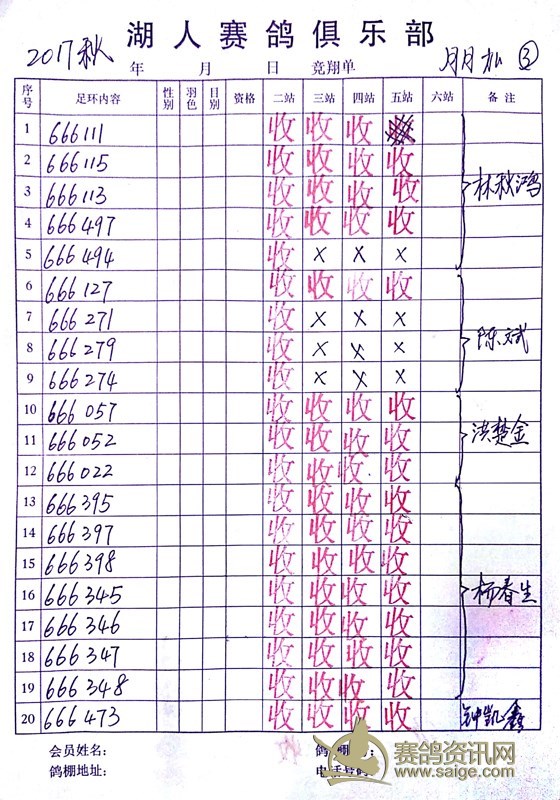 湖人赛鸽俱乐部
2017秋 年 月 日 竞翔单 月月加 ③
序号 足环内容 性别 羽色 日别 资格 二站 三站 四站 五站 六站 备注
1 666111 收 收 收
2 666115 收 收 收 收
3 666113 收 收 收 收 林秋鸿
4 666497 收 收 收 收
5 666494 收 × × ×
6 666127 收 收 收 收
7 666271 收 × × ×
8 666279 收 × × × 陈斌
9 666274 收 × × ×
10 666057 收 收 收 收
11 666052 收 收 收 收 洪楚金
12 666022 收 收 收 收
13 666395 收 收 收 收
14 666397 收 收 收 收
15 666398 收 收 收 收
16 666345 收 收 收 收 杨春生
17 666346 收 收 收 收
18 666347 收 收 收 收
19 666348 收 收 收 收
20 666473 收 收 收 收 钟凯鑫
会员姓名: 鸽棚
鸽棚地址: 电话号码:
赛鸽资讯网
www.saige.com